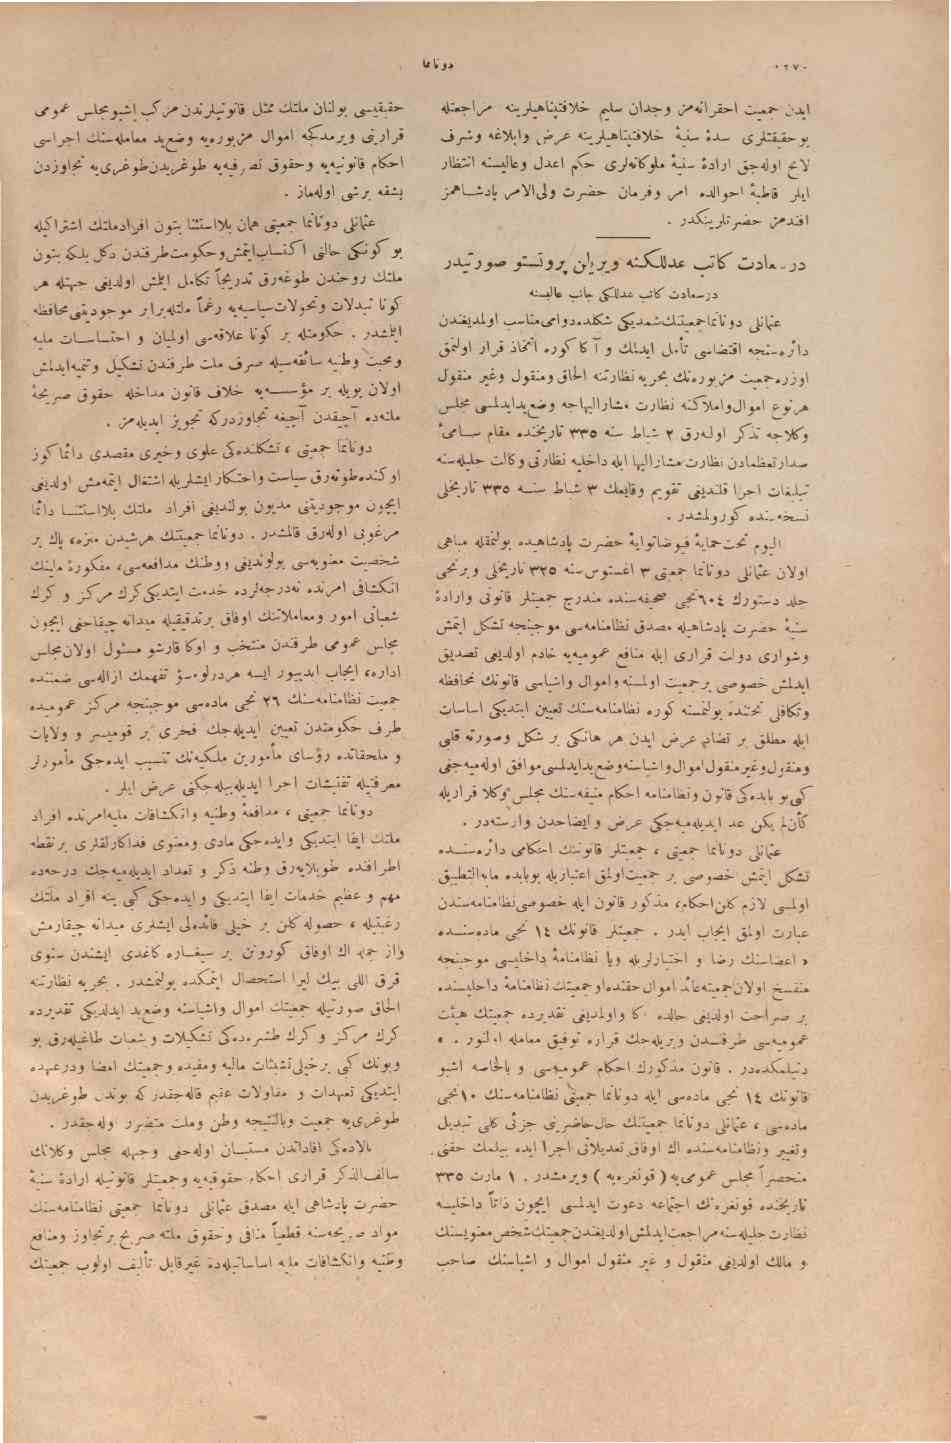 دونانما
٠٢٧٠
ایدن جمعیت احقرانه‌مز وجدان سلیم خلافتپناهیلرینه مراجعتله
بو حقیقتلری سدهٔ سنیهٔ خلافتپناهیلرینه عرض وابلاغه وشرف
لایح اوله‌جق ارادهٔ سنیهٔ ملوکانه‌لری حکم اعدل وعالیسنه انتظار
ایلر قاطبهٔ احوالده امر وفرمان حضرت ولی‌الامر پادشاهمز
افندمز حضرتلرینکدر .
درسعادت کاتب عدللکنه ویریلن پروتستو صورتیدر
درسعادت کاتب عدللکی جانب عالیسنه
عثمانلی دونانما جمعیتنك شمدیکی شکلده دوامی مناسب اولمدیغندن
دائره‌سنجه اقتضاسی تأمل ایدلمك و آ کا کوره اتخاذ قرار اولنمق
اوزره جمعیت مزبوره‌نك بحریه نظارتنه الحاق ومنقول وغیر منقول
هرنوع اموال واملاکنه نظارت مشارالیهاجه وضع‌ید ایدلمسی مجلس
وکلاجه تذکر اوله‌رق ٢ شباط سنه ٣٣٥ تاریخنده مقام سامیٔ
صدارتعظمادن نظارت مشارالیها ایله داخلیه نظارتی وکالت جلیله‌سنه
تبلیغات اجرا قلندیغی تقویم وقایعك ٣ شباط سنه ٣٣٥ تاریخلی
نسخه‌سنده کورولمشدر .
الیوم تحت حمایهٔ فیوضاتوایهٔ حضرت پادشاهیده بولنمقله مباهی
اولان عثمانلی دونانما جمعیتی ٣ اغستوس سنه ٣٢٥ تاریخلی وبرنجی
جلد دستورك ٦٠٤نجی صحیفه‌سنده مندرج جمعیتلر قانونی وارادهٔ
سنیهٔ حضرت پادشاهیله مصدق نظامنامه‌سی موجبنجه تشکل ایتمش
وشورای دولت قراری ایله منافع عمومیه‌یه خادم اولدیغی تصدیق
ایدلمش خصوصی بر جمعیت اولمسنه واموال واشیاسی قانونك محافظه
وتکافلی تحتنده بولنمسنه کوره نظامنامه‌سنك تعیین ایتدیکی اساسات
ایله مطلق بر تضاد عرض ایدن هر هانکی بر شکل وصورته قلبی
ومنقول وغیر منقول اموال واشیاسنه وضع‌ید ایدلمسی موافق اوله‌میه‌جغی
کبی بو بابده‌کی قانون ونظامنامه احکام منیفه‌سنك مجلس وکلا قراریله
کأن لم یکن عد ایدیله‌میه‌جکی عرض و ایضاحدن وارسته‌در .
عثمانلی دونانما جمعیتی ، جمعیتلر قانوننك احکامی دائره‌سنده
تشکل ایتمش خصوصی بر جمعیت اولمق اعتباریله بوبابده مابه‌التطبیق
اولمسی لازم کلن احکام، مذکور قانون ایله خصوصی نظامنامه‌سندن
عبارت اولمق ایجاب ایدر . جمعیتلر قانونك ١٤ نجی ماده‌سنده
« اعضاسنك رضا و اختیارلریله ویا نظامنامهٔ داخلیسی موجبنجه
منفسخ اولان جمعیته عائد اموال حقنده او جمعیتك نظامنامهٔ داخلیسنده
بر صراحت اولدیغی حالده آکا واولمدیغی تقدیرده جمعیتك هیئت
عمومیه‌سی طرفندن ویریله‌جك قراره توفیق معامله اولنور . »
دنیلمکده‌در . قانون مذکورك احکام عمومیه‌سی و بالخاصه اشبو
قانونك ١٤ نجی ماده‌سی ایله دونانما جمعیتی نظامنامه‌سنك ١٠نجی
ماده‌سی ، عثمانلی دونانما جمعیتنك حال حاضرینی جزئی کلی تبدیل
وتغییر ونظامنامه‌سنده اك اوفاق تعدیلاتی اجرا ایده بیلمك حقنی
منحصراً مجلس عمومی‌یه ( قونغره‌یه ) ویرمشدر . ١ مارت ٣٣٥
تاریخنده قونغره‌نك اجتماعه دعوت ایدلمسی ایچون ذاتاً داخلیه
نظارت جلیله‌سنه مراجعت ایدلمش اولدیغندن جمعیتك شخص معنویسنك
و مالك اولدیغی منقول و غیر منقول اموال و اشیاسنك صاحب
حقیقیسی بولنان ملتك ممثل قانونیلرندن مرکب اشبو مجلس عمومی
قرارینی ویرمدکجه اموال مزبوره‌یه وضع‌ید معامله‌سنك اجراسی
احکام قانونیه‌یه وحقوق تصرفیه‌یه طوغریدن طوغری‌یه تجاوزدن
بشقه برشی اوله‌ماز .
عثمانلی دونانما جمعیتی همان بلااستثنا بتون افراد ملتك اشتراکیله
بو کونکی حالنی اکتساب ایتمش وحکومت طرفندن دکل بلکه بتون
ملتك روحندن طوغه‌رق تدریجاً تکامل ایلمش اولدیغی جهتله هر
کونا تبدلات وتحولات سیاسیه‌یه رغماً ملتله برابر موجودیتنی محافظه
ایلمشدر . حکومتله بر کونا علاقه‌سی اولمیان و احتساسات ملیه
ومحبت وطنیه سائقه‌سیله صرف ملت طرفندن تشکیل وتنمیه ایدلمش
اولان بویله بر مؤسسه‌یه خلاف قانون مداخله حقوق صریحهٔ
ملته‌ده آچیقدن آچیغه تجاوزدرکه تجویز ایدیله‌مز .
دونانما جمعیتی ، تشکلنده‌کی علوی وخیری مقصدی دائما کوز
اوکنده طوته‌رق سیاست واحتکار ایشلریله اشتغال ایتمه‌مش اولدیغی
ایچون موجودیتنی مدیون بولندیغی افراد ملتك بلااستثنا دائما
مرغوبی اوله‌رق قالمشدر . دونانما جمعیتنك هرشیدن منزه، پاك بر
شخصیت معنویه‌سی بولوندیغی ووطنك مدافعه‌سی، مفکورهٔ ملینك
انکشافی امرنده نه‌درجه‌لرده خدمت ایتدیکی کرك مرکز و کرك
شعباتی امور ومعاملاتنك اوفاق برتدقیقیله میدانه چیقاجغی ایچون
مجلس عمومی طرفندن منتخب و اوکا قارشو مسئول اولان مجلس
اداره، ایجاب ایدییور ایسه هردرلو سؤ تفهمك ازاله‌سی ضمننده
جمعیت نظامنامه‌سنك ٢٦ نجی ماده‌سی موجبنجه مرکز عمومیده
طرف حکومتدن تعیین ایدیله‌جك فخری بر قومیسر و ولایات
و ملحقاتده رؤسای مأمورین ملکیه‌نك تنسیب ایده‌جکی مأمورلر
معرفتیله تفتیشات اجرا ایدیله‌بیله‌جکنی عرض ایلر .
دونانما جمعیتی ، مدافعهٔ وطنیه وانکشافات ملیه امرنده افراد
ملتك ایفا ایتدیکی وایده‌جکی مادی ومعنوی فداکارلقلری بر نقطه
اطرافنده طوپلایه‌رق وطنه ذکر و تعداد ایدیله‌میه‌جك درجه‌ده
مهم و عظیم خدمات ایفا ایتدیکی و ایده‌جکی کبی ینه افراد ملتك
رغبتیله ، حصوله کلن بر خیلی فائده‌لی ایشلری میدانه چیقارمش
واز جمله اك اوفاق کورونن بر سیغاره کاغدی ایشندن سنوی
قرق اللی بیك لیرا استحصال ایتمکده بولنمشدر . بحریه نظارتنه
الحاق صورتیله جمعیتك اموال واشیاسنه وضع‌ید ایدلدیکی تقدیرده
کرك مرکز و کرك طشره‌ده‌کی تشکیلات و شعبات طاغیله‌رق بو
وبونك کبی برخیلی تشبثات مالیه ومفیده وجمعیتك امضا ودرعهده
ایتدیکی تعهدات و مقاولات عقیم قاله‌جقدر که بوندن طوغریدن
طوغری‌یه جمعیت وبالنتیجه وطن وملت متضرر اوله‌جقدر .
بالاده‌کی افاداتدن مستبان اوله‌جغی وجهله مجلس وکلانك
سالف‌الذکر قراری احکام حقوقیه‌یه وجمعیتلر قانونیله ارادهٔ سنیهٔ
حضرت پادشاهی ایله مصدق عثمانلی دونانما جمعیتی نظامنامه‌سنك
مواد صریحه‌سنه قطعیاً منافی وحقوق ملته صریح برتجاوز ومنافع
وطنیه وانکشافات ملیه اساساتیله‌ده غیرقابل تألیف اولوب جمعیتك